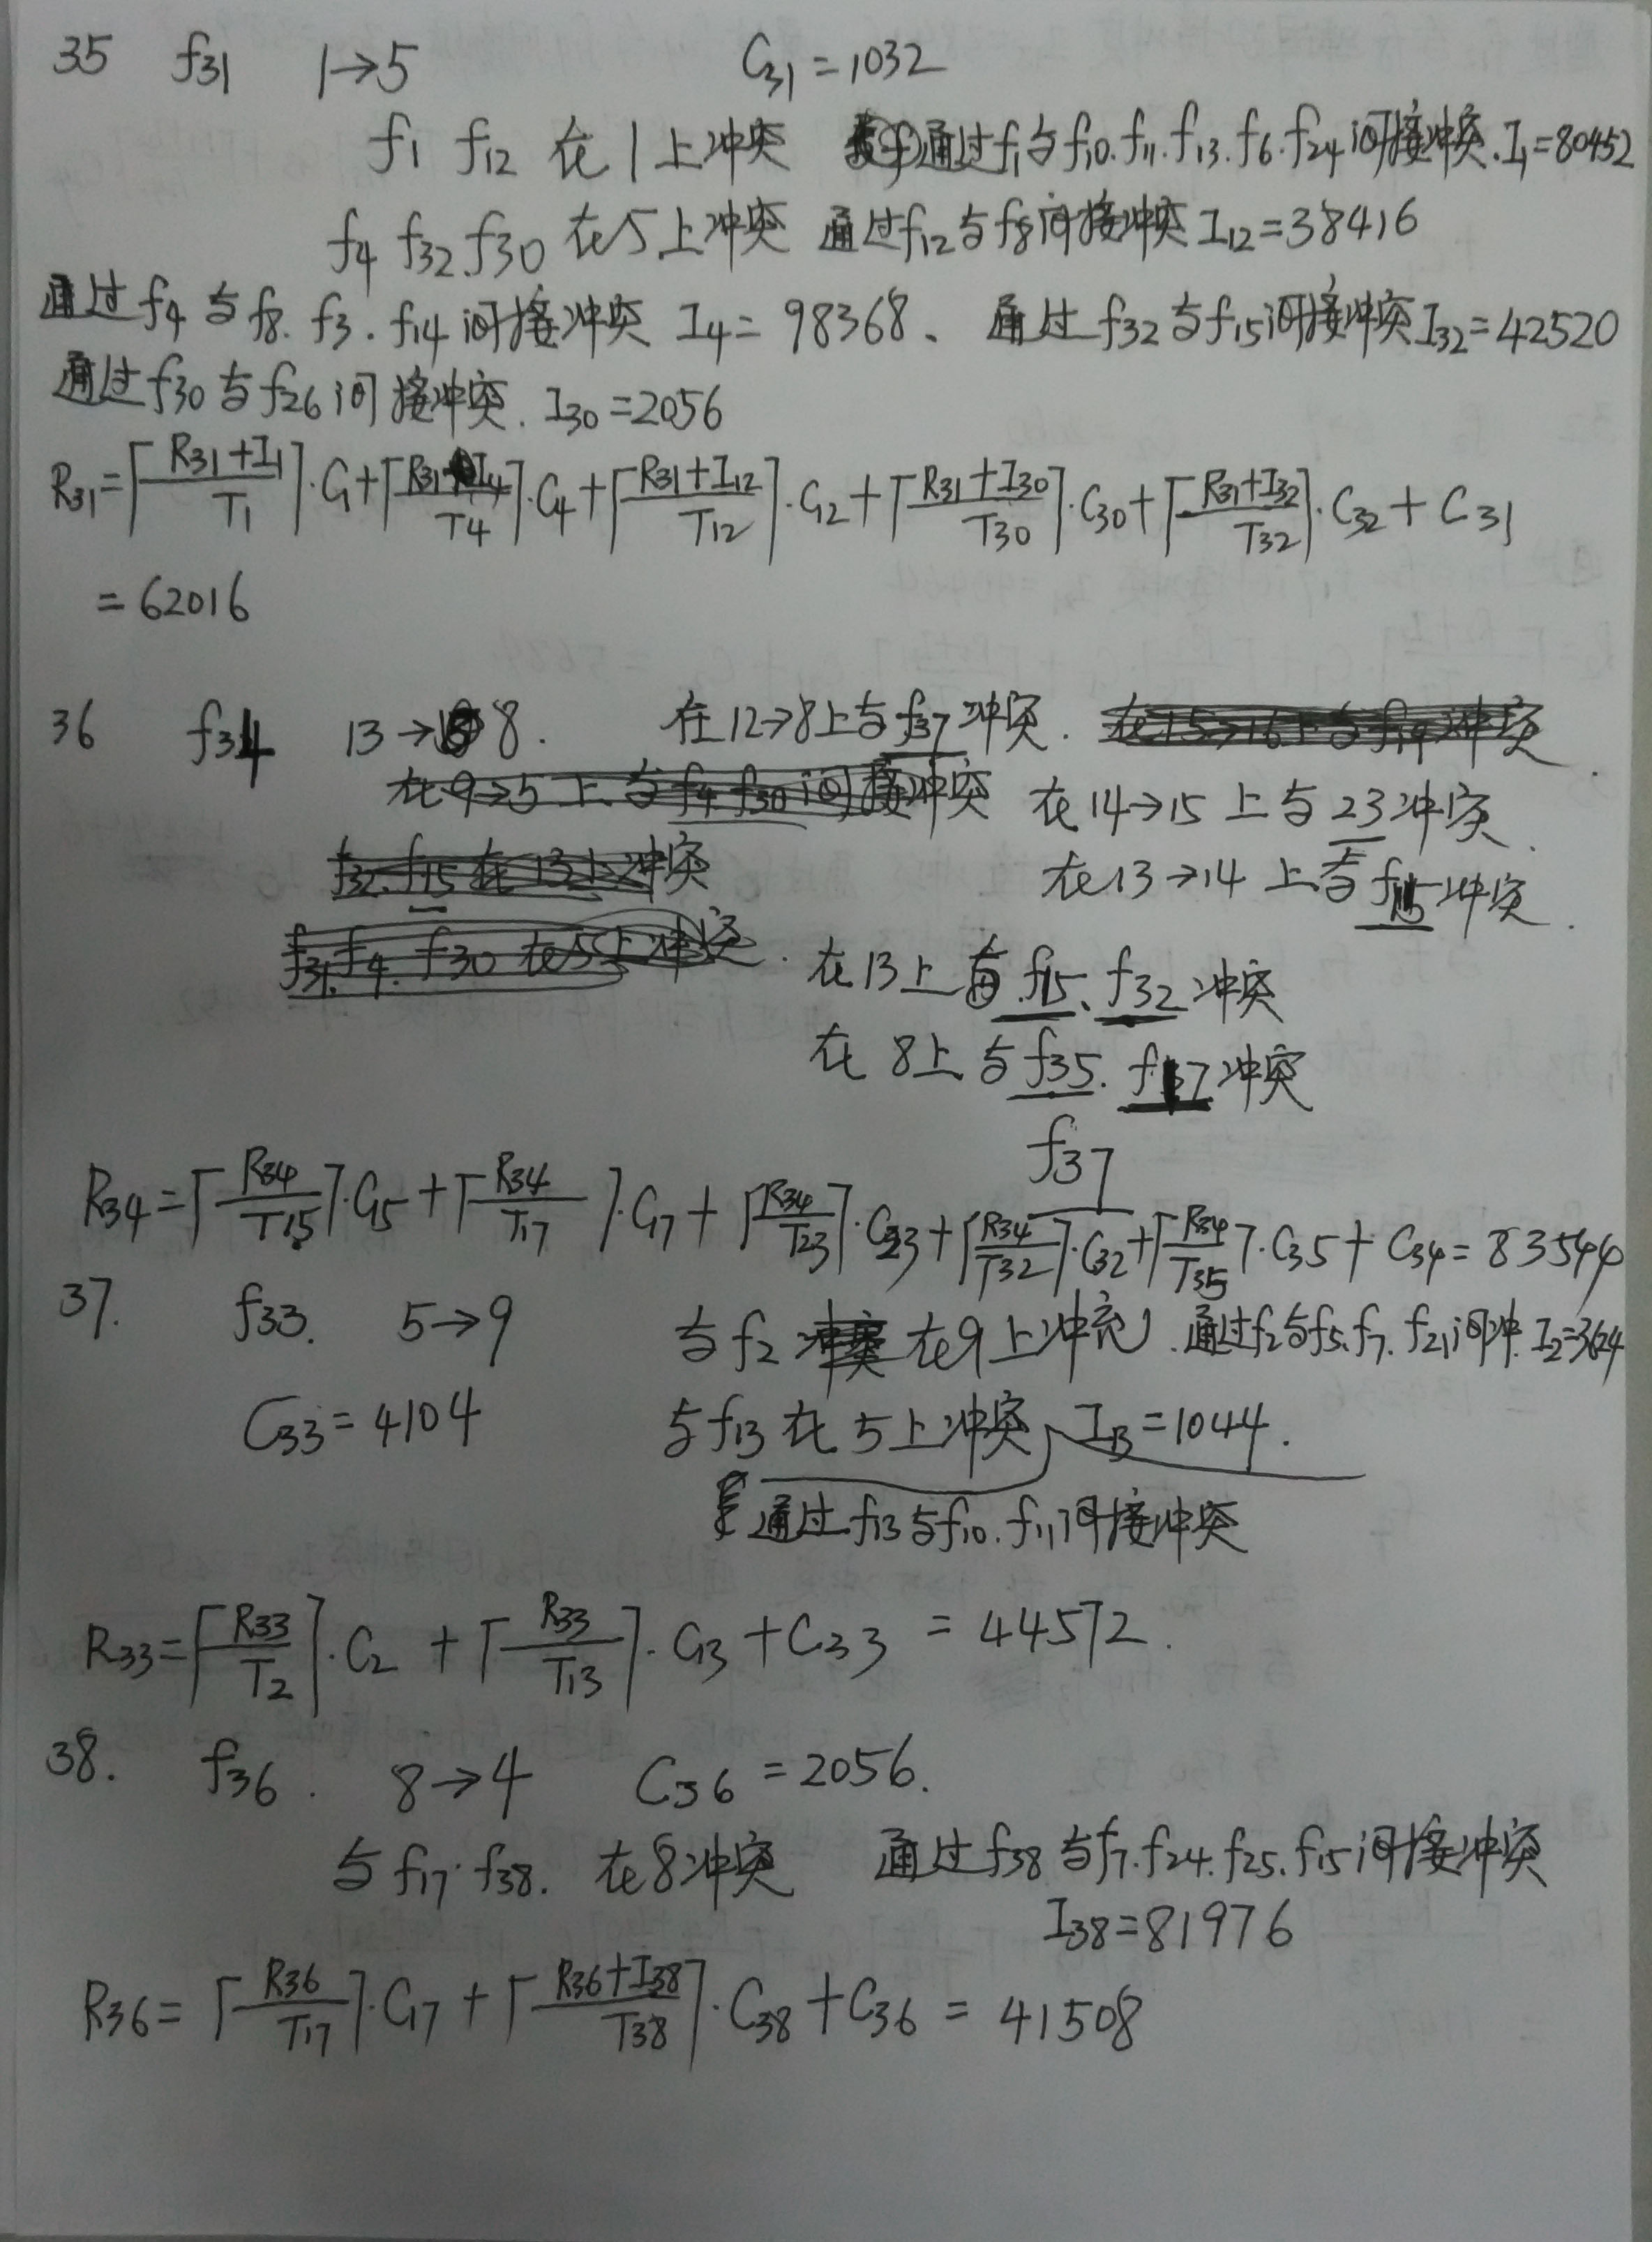 35 f31 1→5 C31=1032
f1 f12 在1上冲突 通过f1与f10.f11.f13.f6.f24间接冲突.I1=80452
f4 f32.f30 在5上冲突 通过f12与f8间接冲突 I12=38416
通过f4与f8.f3.f14间接冲突 I4=98368、通过f32与f15间接冲突I32=42520
通过f30与f26间接冲突. I30=2056
R31=⌈(R31+I1)/T1⌉·C1+⌈(R31+I4)/T4⌉·C4+⌈(R31+I12)/T12⌉·C12+⌈(R31+I30)/T30⌉·C30+⌈(R31+I32)/T32⌉·C32+C31
=62016
36 f34 13→8. 在12→8上与f37冲突.
在14→15上与23冲突.
在13→14上与f15冲突.
在13上与f15、f32冲突
在8上与f35.f37冲突
f37
R34=⌈R34/T15⌉·C15+⌈R34/T17⌉·C17+⌈R34/T23⌉·C23+⌈R34/T32⌉·C32+⌈R34/T35⌉·C35+C34=83544
37. f33. 5→9 与f2在9上冲突.通过f2与f5.f7.f21间冲.I2=3624
C33=4104 与f13在5上冲突, I13=1044.
通过f13与f10.f11间接冲突
R33=⌈R33/T2⌉·C2+⌈R33/T13⌉·C13+C33=44572.
38. f36. 8→4 C36=2056.
与f17.f38.在8冲突 通过f38与f7.f24.f25.f15间接冲突
I38=81976
R36=⌈R36/T17⌉·C17+⌈(R36+I38)/T38⌉·C38+C36=41508